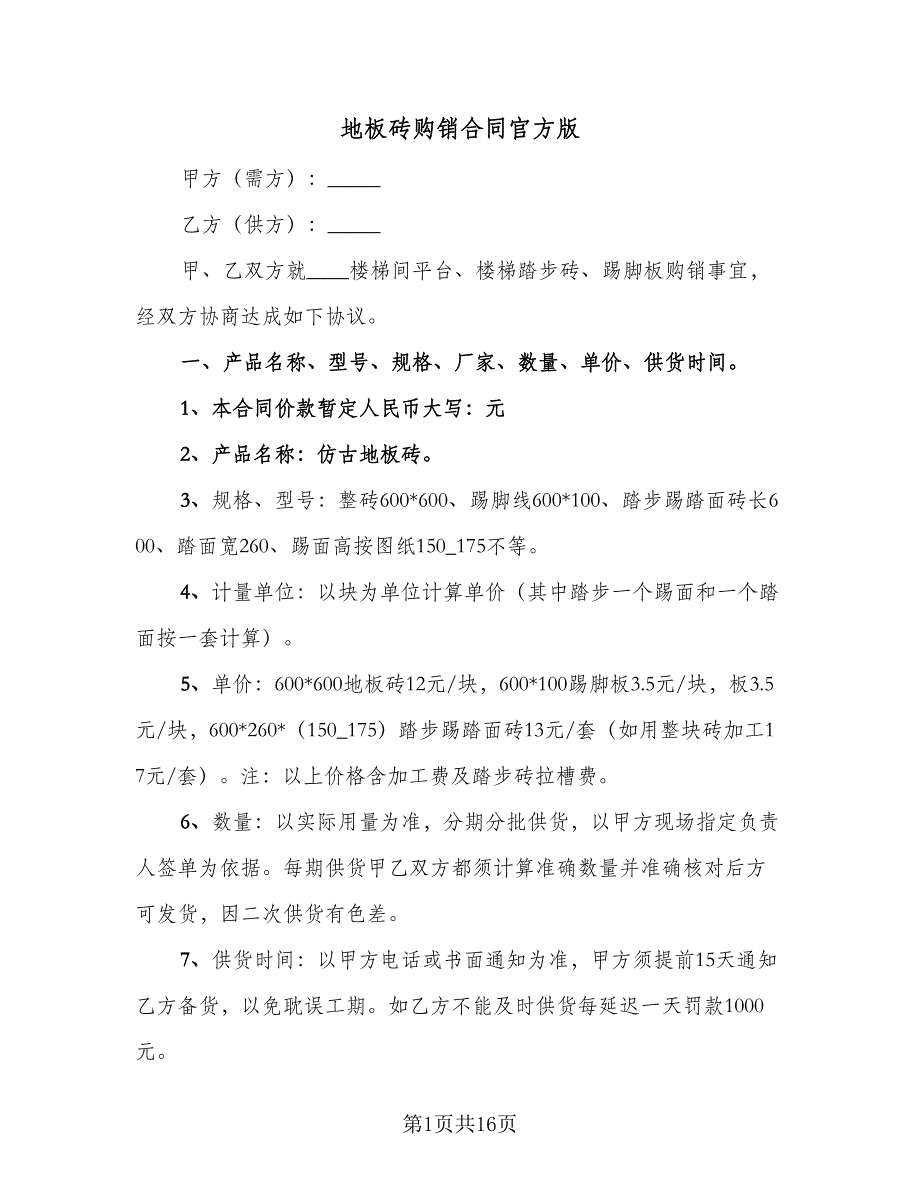 地板砖购销合同官方版
甲方（需方）：_____
乙方（供方）：_____
甲、乙双方就____楼梯间平台、楼梯踏步砖、踢脚板购销事宜，
经双方协商达成如下协议。
一、产品名称、型号、规格、厂家、数量、单价、供货时间。
1、本合同价款暂定人民币大写：元
2、产品名称：仿古地板砖。
3、规格、型号：整砖600*600、踢脚线600*100、踏步踢踏面砖长6
00、踏面宽260、踢面高按图纸150_175不等。
4、计量单位：以块为单位计算单价（其中踏步一个踢面和一个踏
面按一套计算）。
5、单价：600*600地板砖12元/块，600*100踢脚板3.5元/块，板3.5
元/块，600*260*（150_175）踏步踢踏面砖13元/套（如用整块砖加工1
7元/套）。注：以上价格含加工费及踏步砖拉槽费。
6、数量：以实际用量为准，分期分批供货，以甲方现场指定负责
人签单为依据。每期供货甲乙双方都须计算准确数量并准确核对后方
可发货，因二次供货有色差。
7、供货时间：以甲方电话或书面通知为准，甲方须提前15天通知
乙方备货，以免耽误工期。如乙方不能及时供货每延迟一天罚款1000
元。
第1页共16页